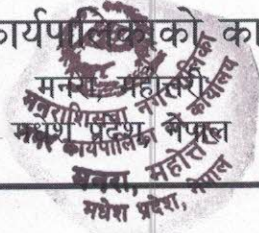 कार्यपालिकाको का
मनरा, महोत्तरी
मधेश प्रदेश, नेपाल
मनराशिसवा नगरपालिका
नगर कार्यपालिकाको कार्यालय
मनरा, महोत्तरी
मधेश प्रदेश, नेपाल